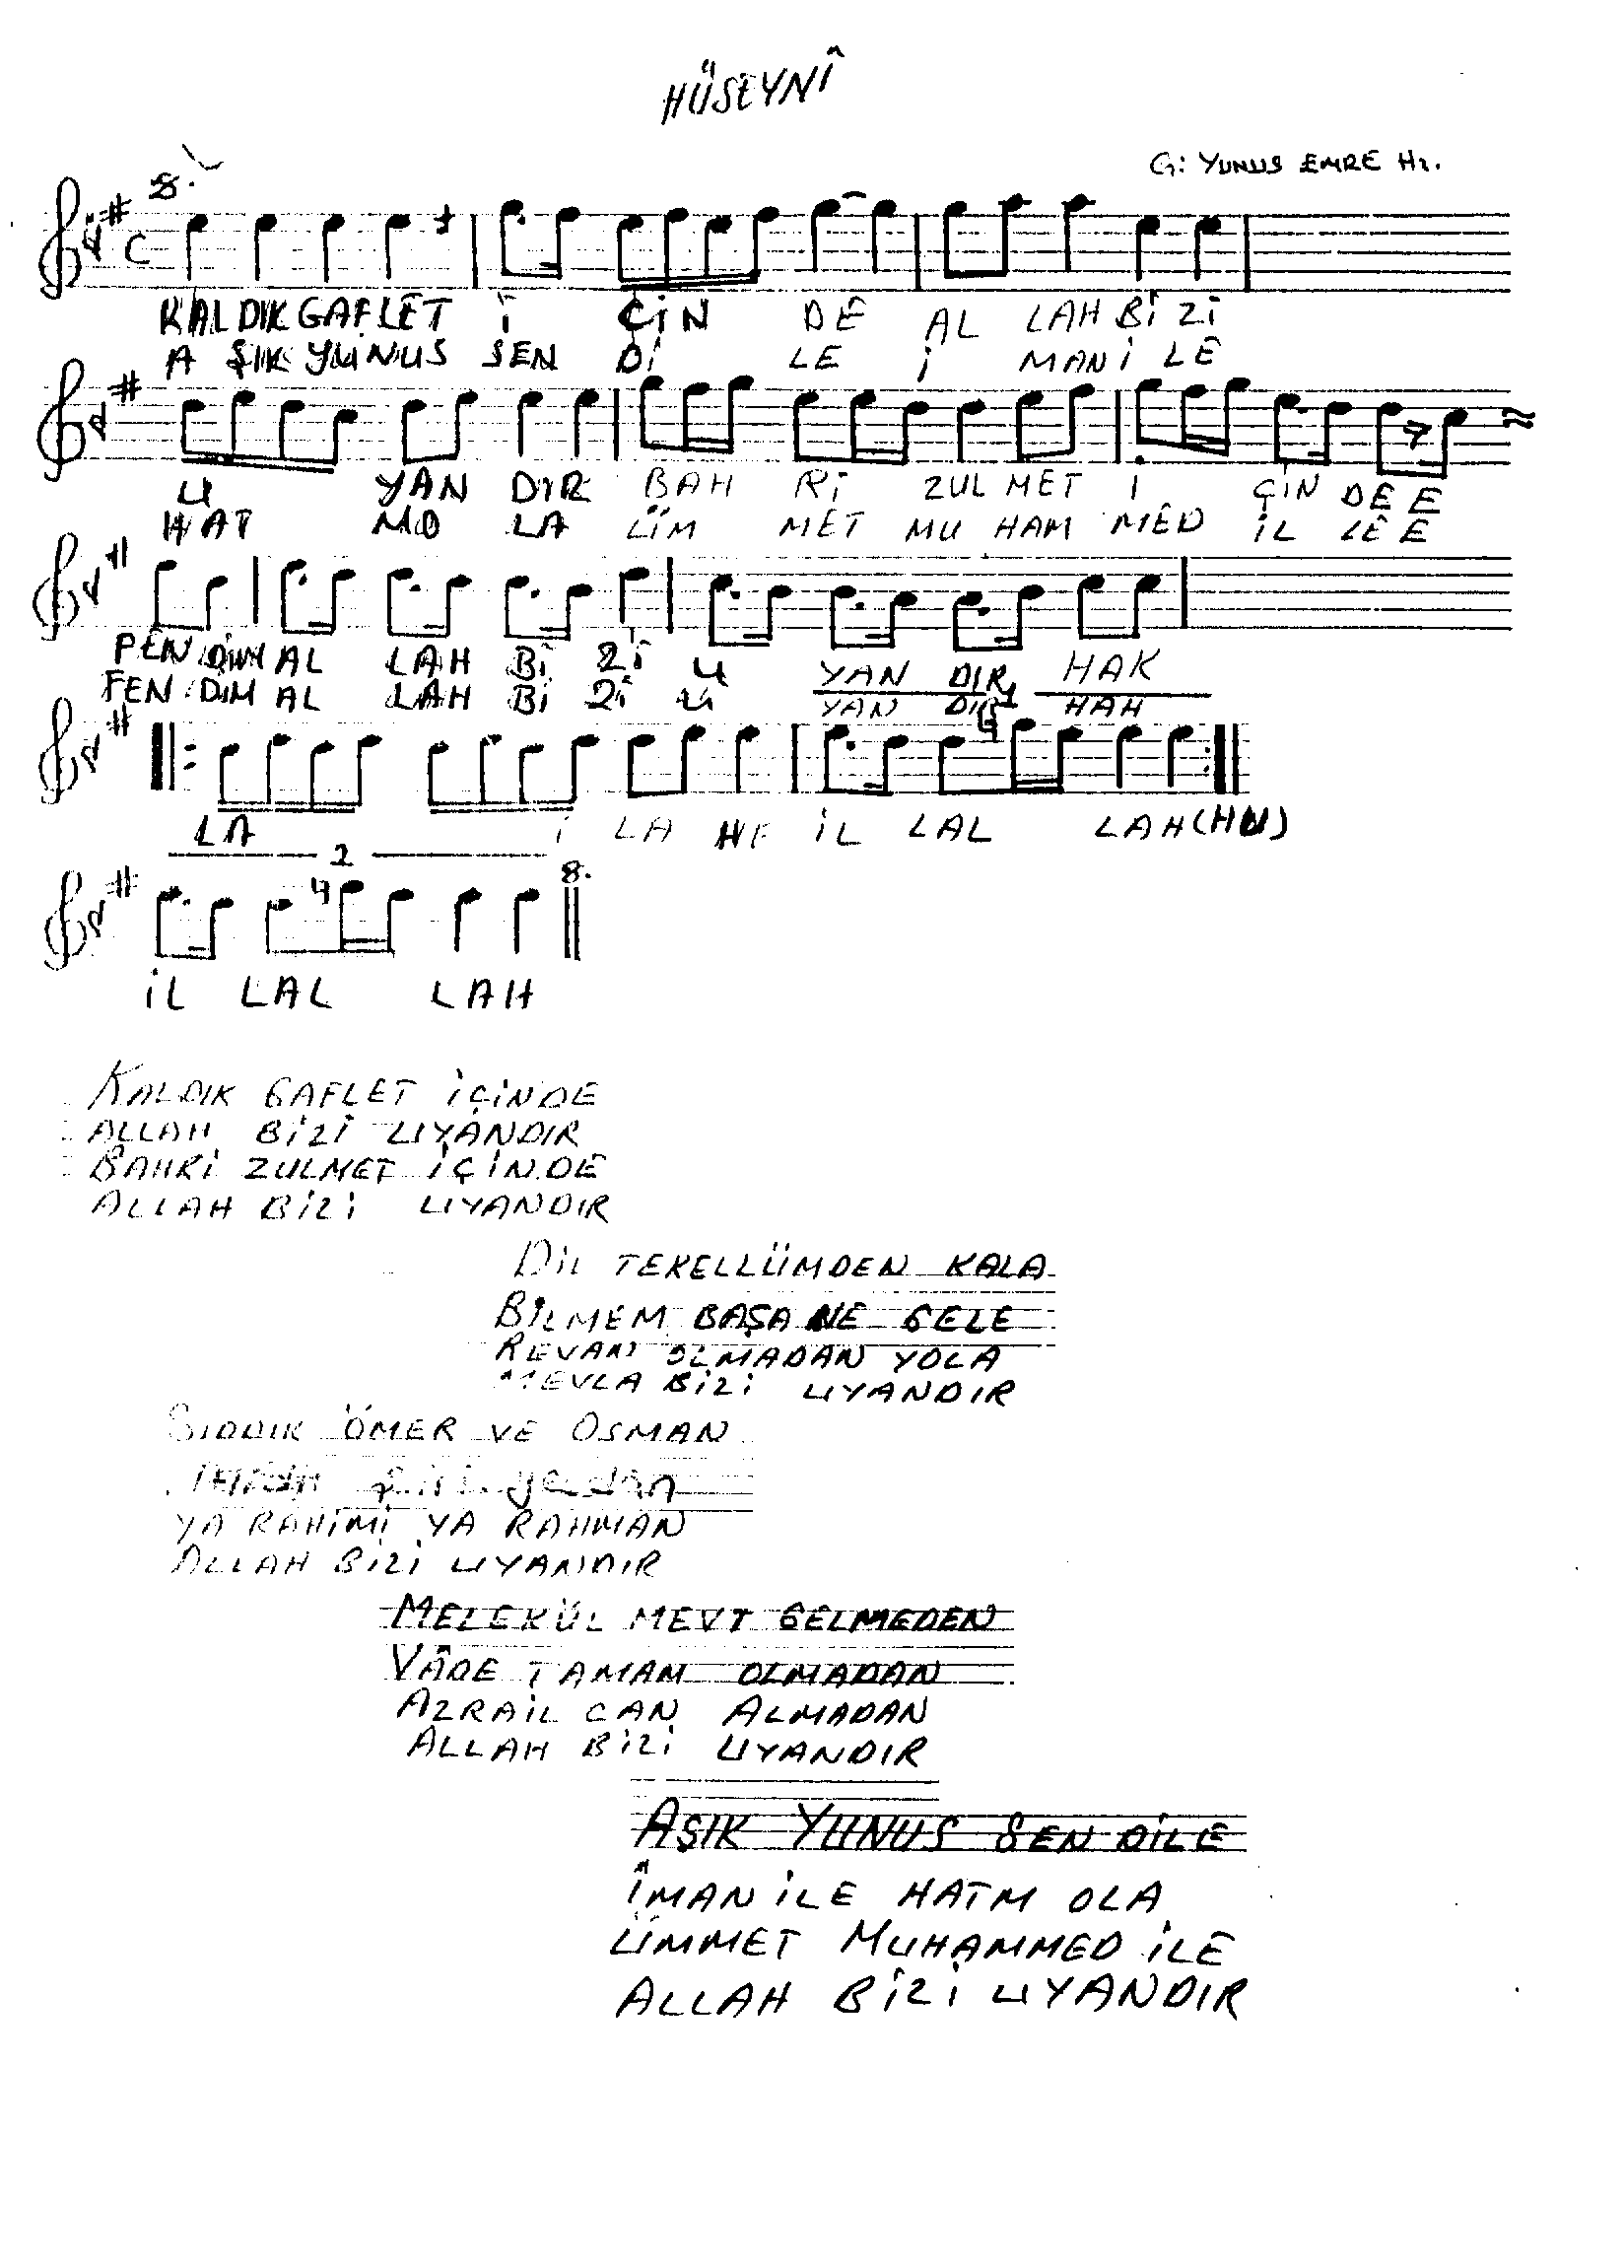 HÜSEYNÎ
G: YUNUS EMRE Hz.
KALDIK GAFLET İ ÇİN DE AL LAH BİZİ
A ŞIK YUNUS SEN Dİ LE İ MAN İ LE
U YAN DIR BAH Rİ ZUL MET İ ÇİN DE E
HAT MO LA ÜM MET MU HAM MED İL LE E
FEN DİM AL LAH Bİ Zİ U YAN DIR HAK
FEN DİM AL LAH Bİ Zİ U YAN DIR HAH
LA İ LA HE İL LAL LAH (HU)
2
İL LAL LAH
KALDIK GAFLET İÇİNDE
ALLAH BİZİ UYANDIR
BAHRİ ZULMET İÇİNDE
ALLAH BİZİ UYANDIR
DİL TEKELLÜMDEN KALA
BİLMEM BAŞA NE GELE
REVAN OLMADAN YOLA
MEVLA BİZİ UYANDIR
SIDDIK ÖMER VE OSMAN
YA RAHİMİ YA RAHMAN
ALLAH BİZİ UYANDIR
MELEKÜL MEVT GELMEDEN
VÂDE TAMAM OLMADAN
AZRAİL CAN ALMADAN
ALLAH BİZİ UYANDIR
AŞIK YUNUS SEN DİLE
ÎMAN İLE HATM OLA
ÜMMET MUHAMMED İLE
ALLAH BİZİ UYANDIR